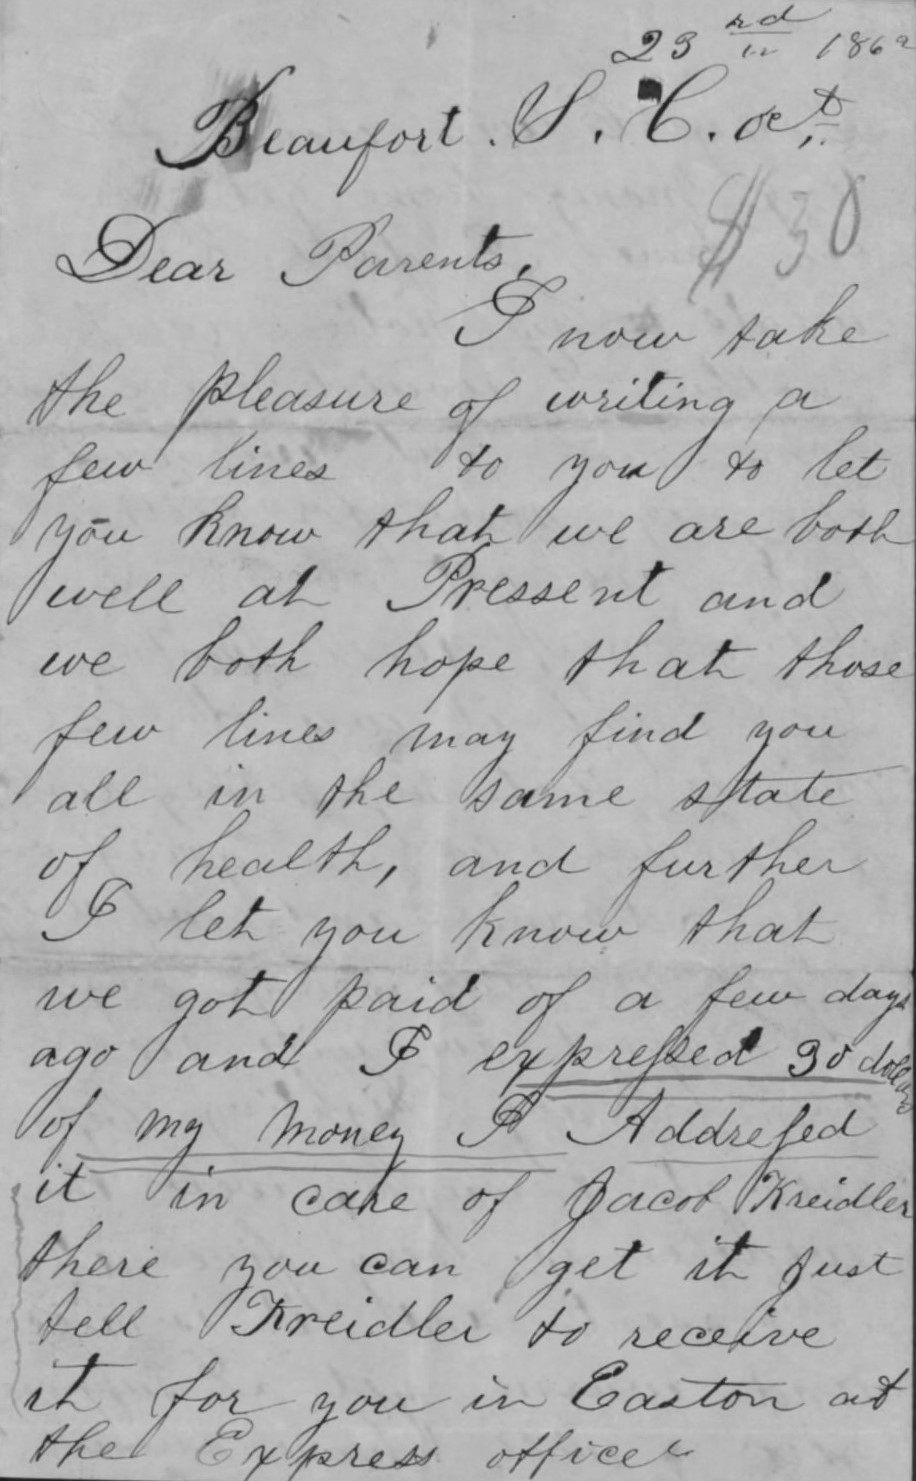 23rd 186
Beaufort. S. C. Oct.
$30
Dear Parents,
I now take
the pleasure of writing a
few lines to you to let
you know that we are both
well at Pressent and
we both hope that those
few lines may find you
all in the same state
of health, and further
I let you know that
we got paid of a few days
ago and I expressed 30 dollars
of my money I Addressed
it in care of Jacob Kreidler
there you can get it Just
tell Kreidler to receive
it for you in Easton at
the Express office